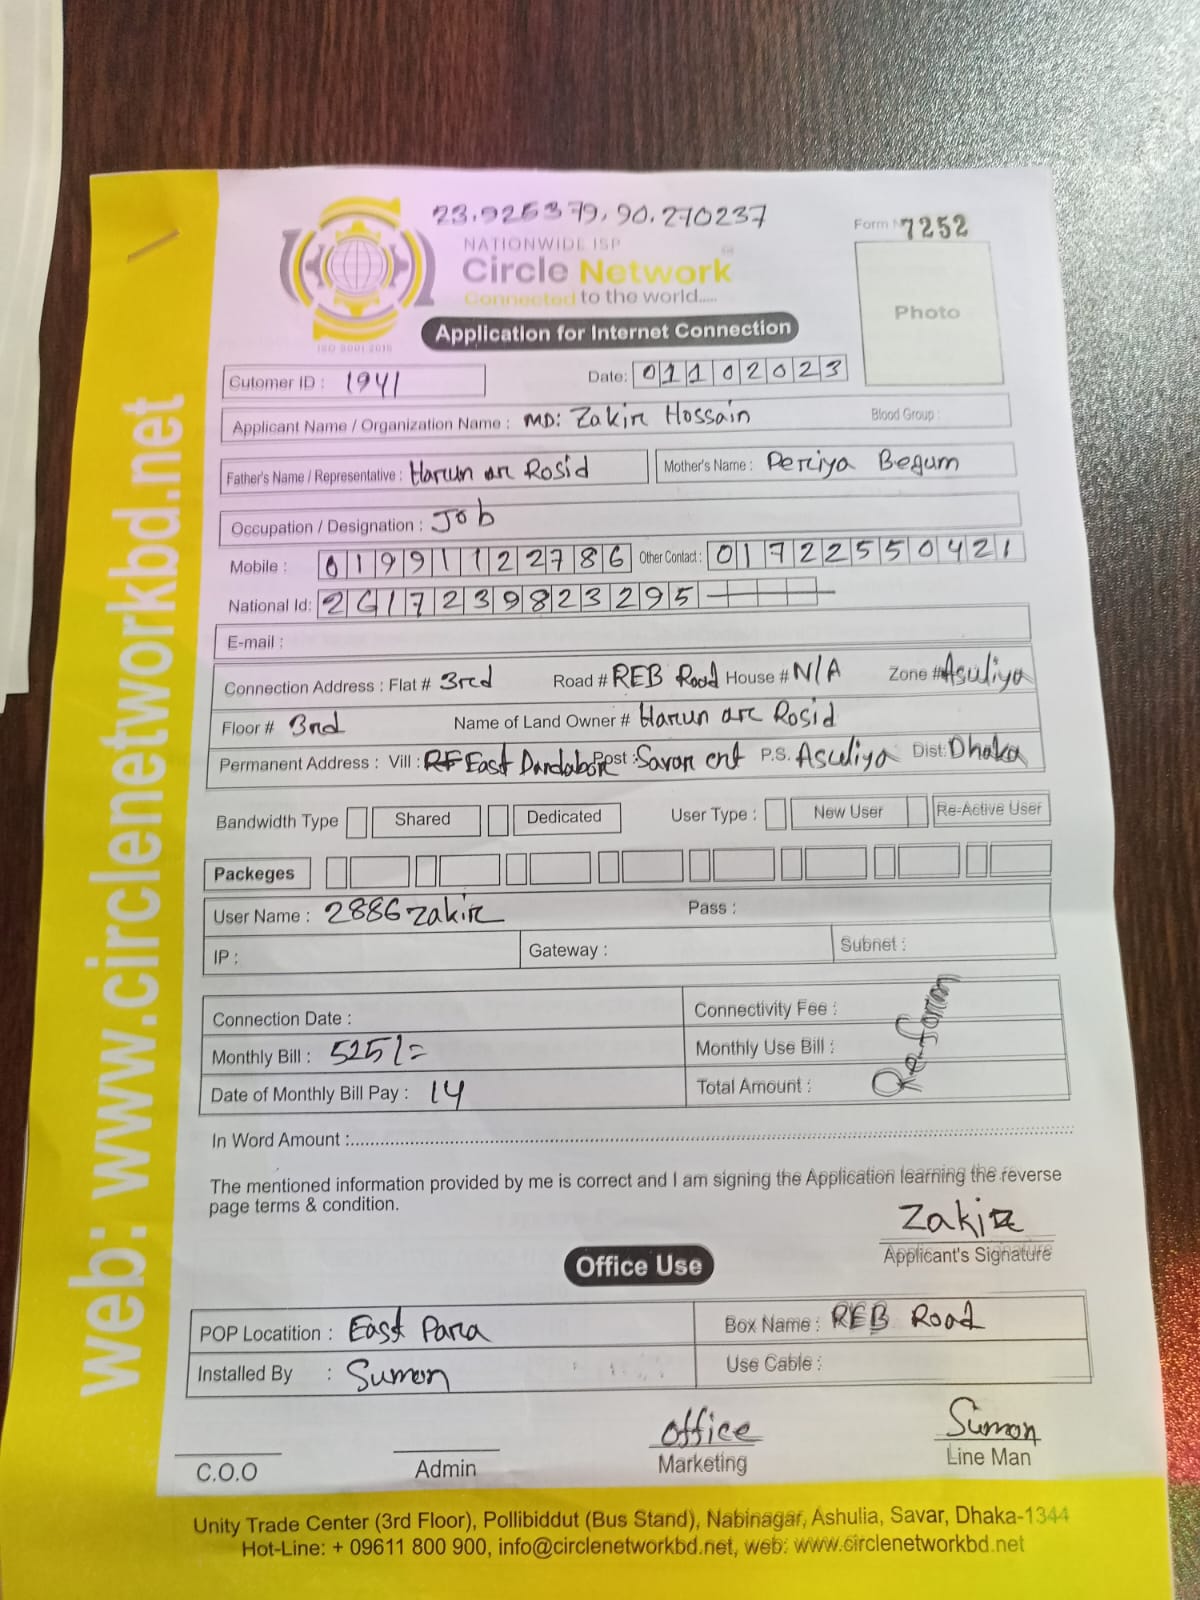 23.925379, 90.270237
Form N 7252
NATIONWIDE ISP
Circle Network
Connected to the world.....
ISO 9001:2015
Photo
Application for Internet Connection
Cutomer ID : 1941
Date: 01102023
Applicant Name / Organization Name : MD: Zakir Hossain Blood Group :
Father's Name / Representative : Harun ar Rosid Mother's Name : Periya Begum
Occupation / Designation : Job
Mobile : 01991122786 Other Contact : 01722550421
National Id: 2617239823295
E-mail :
Connection Address : Flat # 3rd Road # REB Road House # N/A Zone # Asuliya
Floor # 3rd Name of Land Owner # Harun ar Rosid
Permanent Address : Vill : East Post : Savar cnt P.S. Asuliya Dist: Dhaka
Bandwidth Type Shared Dedicated User Type : New User Re-Active User
Packeges
User Name : 2886zakir Pass :
IP : Gateway : Subnet :
Connection Date : Connectivity Fee :
Monthly Bill : 525/= Monthly Use Bill :
Date of Monthly Bill Pay : 14 Total Amount :
In Word Amount :
The mentioned information provided by me is correct and I am signing the Application learning the reverse
page terms & condition.
Zakir
Applicant's Signature
Office Use
POP Locatition : East Para Box Name : REB Road
Installed By : Sumon Use Cable :
office Sumon
C.O.O Admin Marketing Line Man
Unity Trade Center (3rd Floor), Pollibiddut (Bus Stand), Nabinagar, Ashulia, Savar, Dhaka-1344
Hot-Line: + 09611 800 900, info@circlenetworkbd.net, web: www.circlenetworkbd.net
web: www.circlenetworkbd.net